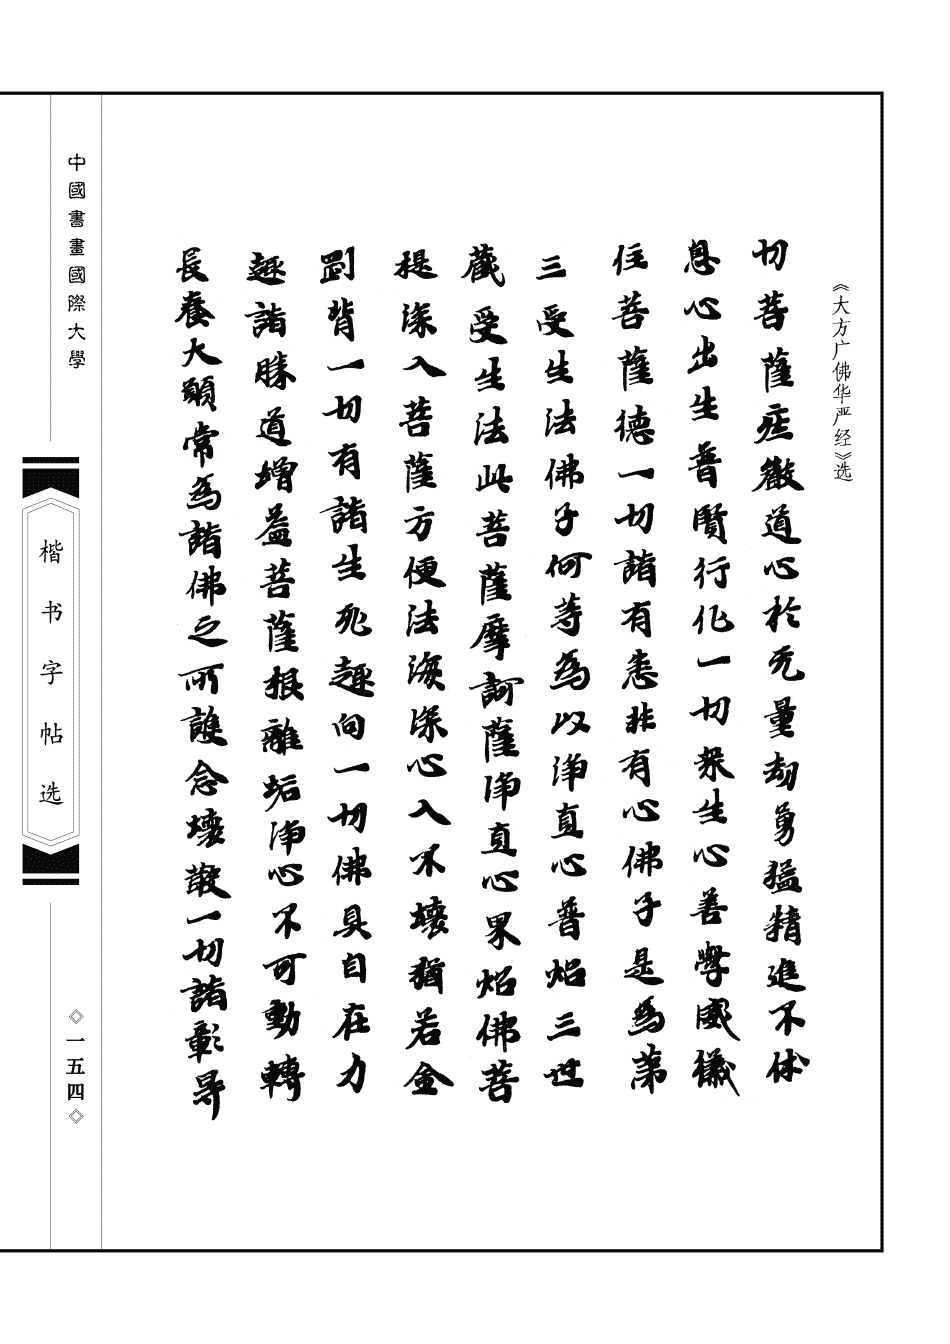 《大方广佛华严经》选
切菩薩莊嚴道心於无量劫勇猛精進不休
息心出生普賢行化一切眾生心善學威儀
住菩薩德一切諸有悉非有心佛子是為第
三受生法佛子何等為以淨直心普焰三世
藏受生法此菩薩摩訶薩淨直心果焰佛菩
提深入菩薩方便法海深心入不壞猶若金
剛背一切有諸生死趣向一切佛具自在力
趣諸勝道增益菩薩根離垢淨心不可動轉
長養大願常為諸佛之所護念壞散一切諸彰导
中國書畫國際大學
楷书字帖选
一五四